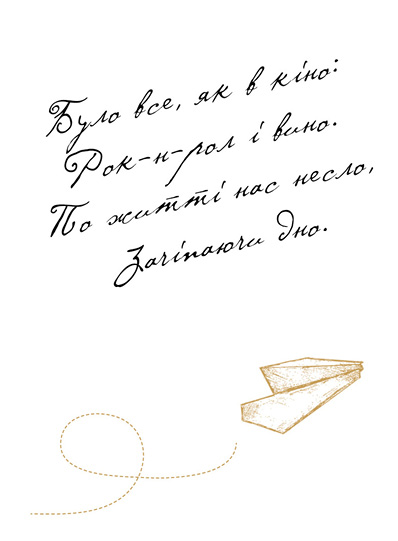 Було все, як в кіно:
Рок-н-рол і вино.
По життті нас несло,
Зачіпаючи дно.